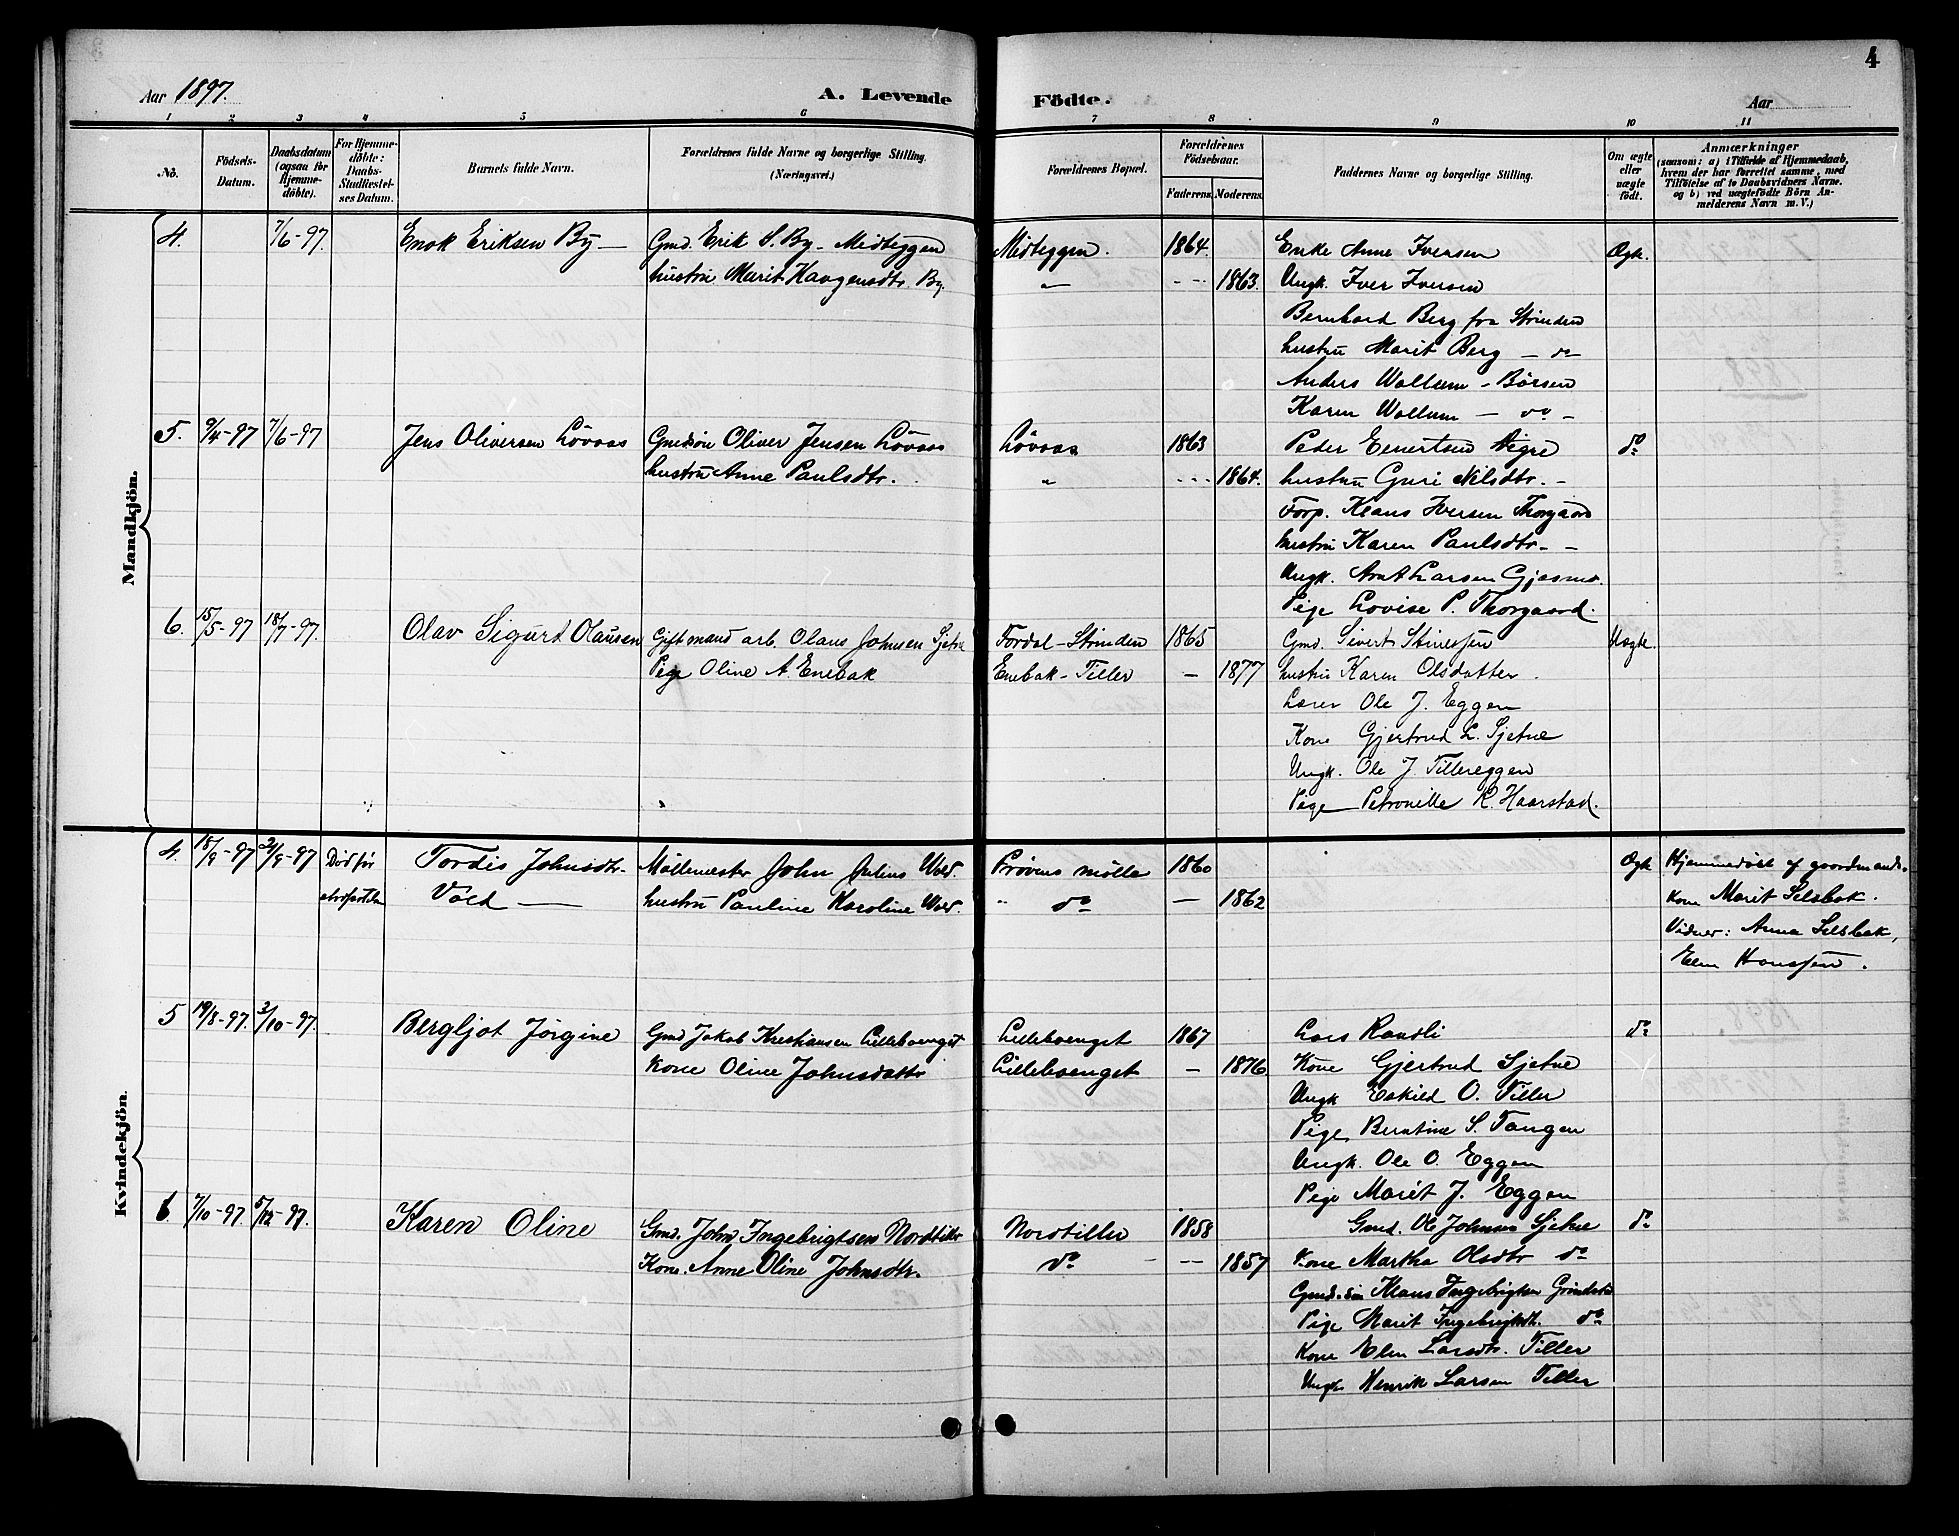 4
Aar 1897.
A. Levende Födte.
Aar
1 2 3 4 5 6 7 8 9 10 11
No.
Födsels-Datum.
Daabsdatum (ogsaa for Hjemme-döbte).
For Hjemme-döbte: Daabs-Stadfæstel-ses Datum.
Barnets fulde Navn.
Forældrenes fulde Navne og borgerlige Stilling. (Næringsvei.)
Forældrenes Bopæl.
Forældrenes Födselsaar.
Faderens. Moderens.
Faddernes Navne og borgerlige Stilling.
Om ægte eller uægte födt.
Anmærkninger
(saasom: a) i Tilfælde af Hjemmedaab, hvem der har forrettet samme, med Tilföielse af to Daabsvidners Navne, og b) ved uægtefödte Börn An-melderens Navn m. V.)
Mandkjön.
4. 7/6-97. Enok Eriksen By — Gmd. Erik S. By - Midteggen Midteggen. 1864. Enke Anne Iversen Ægte.
hustru Marit Haagensdtr By. " --- 1863. Ungk. Iver Iversen
Bernhard Berg fra Strinden
hustru Marit Berg — do —
Anders Wollum - Börsen
Karen Wollum — do —
5. 9/4-97 7/6-97 Jens Oliversen Lövaas Gmdsön Oliver Jensen Lövaas Lövaas 1863 Peder Eenertsen do
hustru Anne Paulsdtr. " --- 1864. hustru Guri Nilsdtr. -
Forp. Klaus Iversen Thorgaard
hustru Karen Paulsdtr - -
Ungk. Arnt Larsen Gjesmo.
Pige Lovise P. Thorgaard.
6. 15/5-97 18/7-97. Olav Sigurd Olausen Gift mand arb. Olaus Johnsen Sjetne Fordal - Strinden 1865 Gmd. Sivert Uægte.
Pige Oline A. Enebak Enebak - Tiller — 1877 hustru Karen Olsdatter.
Lærer Ole J. Eggen
Kone Gjertrud L. Sjetne
Ungk. Ole J. Tillereggen
Pige Petronille K. Haarstad.
Kvindekjön.
4. 18/9-97 21/9-97 Död för Tordis Johnsdtr. Möllemester John Julius Wold. Prövens mölle 1860 Ægte Hjemmedöbt af gaardmands-
Vold — hustru Pauline Karoline Wold. " do — 1862 kone Marit Selsbak.
Vidner: Anna Selsbak,
Elen Hanssen.
5 19/8-97. 3/10-97. Bergljot Jörgine Gmd Jakob Kristiansen Lillebvenget Lillebvenget 1867 Lars Randli do
Kone Oline Johnsdattr Lillebvenget — 1876 Kone Gjertrud Sjetne
Ungk Eskild O. Tiller
Pige Berntine S. Tangen
Ungk. Ole O. Eggen
Pige Marit J. Eggen
6. 7/10-97. 5/12-97. Karen Oline Gmd. John Ingebrigtsen Nordtiller Nordtiller 1858 Gmd. Ole Johnsen Sjetne do
Kone. Anne Oline Johnsdtr. do -- 1857 Kone Martha Olsdtr do
Gmd.sön Klaus Ingebrigtsen
Pige Marit Ingebrigtsdt. do
Kone Elen Larsdtr. Tiller
Ungk Henrik Larsen Tiller